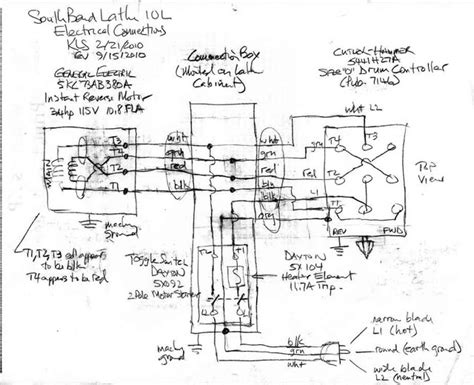 South Bend Lathe 10L
Electrical Connections
KLS 2/21/2010
REV 9/15/2010
General Electric
5KC73AB380A
Instant Reverse Motor
3/4hp 115V 10.8 FLA
Connection Box
(Mounted on Lathe
Cabinet)
Cutler-Hammer
Size "0" Drum Controller
wht L2
T3
T4
T2
T1
MAIN
wht
grn
red
blk
wht
grn
red
blk
grn
Red
L1
T4
T3
Top
View
REV
FWD
mach
ground
T1, T2, T3 all appear
to be blk
T4 appears to be red
Toggle Switch
DAYTON
5X092
2 Pole Motor Starter
T2
T1
L2
L1
DAYTON
5X104
Heater Element
11.7A Trip
mach
ground
blk
grn
wht
narrow blade
L1 (hot)
round (earth ground)
wide blade
L2 (neutral)